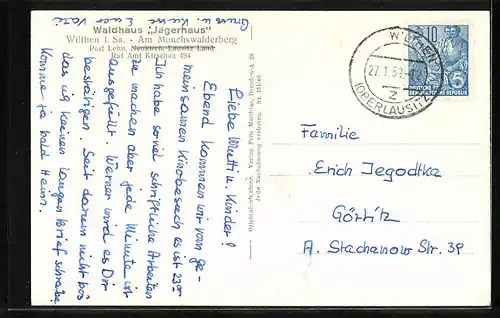 Gruss u. Küsse Euer Vati
Waldhaus „Jägerhaus"
Wilthen i. Sa. - Am Mönchswalderberg
Post Lohn, Neukirch, Lausitz Land
Ruf Amt Kirschau 494
Liebe Mutti u. Kinder!
Ebend kommen wir vom ge-
meinsamen Kinobesuch es ist 23 Uhr
Ich habe soviel schriftliche Arbeiten
zu machen aber jede Minute ist
ausgefüllt. Werner wird es Dir
bestätigen. Seit darum nicht bös
das ich keinen langen Brief schreibe
komme ja bald Heim.
Originalaufnahme, Verlag Fritz Dresden A 28
Jede Nachahmung verboten.
WILTHEN
27.1.59
z
(OBERLAUSITZ)
10
DEUTSCHE
DEMOKRATISCHE REPUBLIK
Familie
Erich Jegodtka
Görlitz
A. Stachanow Str. 39